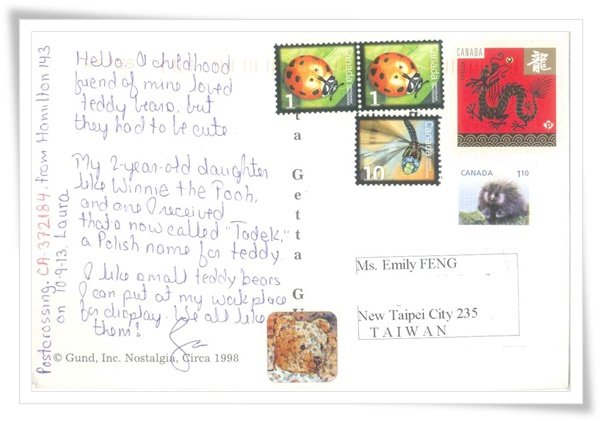 Hello. A childhood
friend of mine loved
teddy bears, but
they had to be cute.
My 2-year-old daughter
like Winnie the Pooh,
and one I received
that's now called "Tadek,"
a Polish name for teddy.
I like small teddy bears
I can put at my workplace
for display. We all like
them!
© Gund, Inc. Nostalgia, Circa 1998
Postcrossing. CA-372184. from Hamilton 143
on 10-9-13. Laura
ta Getta G
Canada
1
Canada
1
Canada
10
CANADA
龍
P
CANADA 1.10
Ms. Emily FENG
New Taipei City 235
TAIWAN